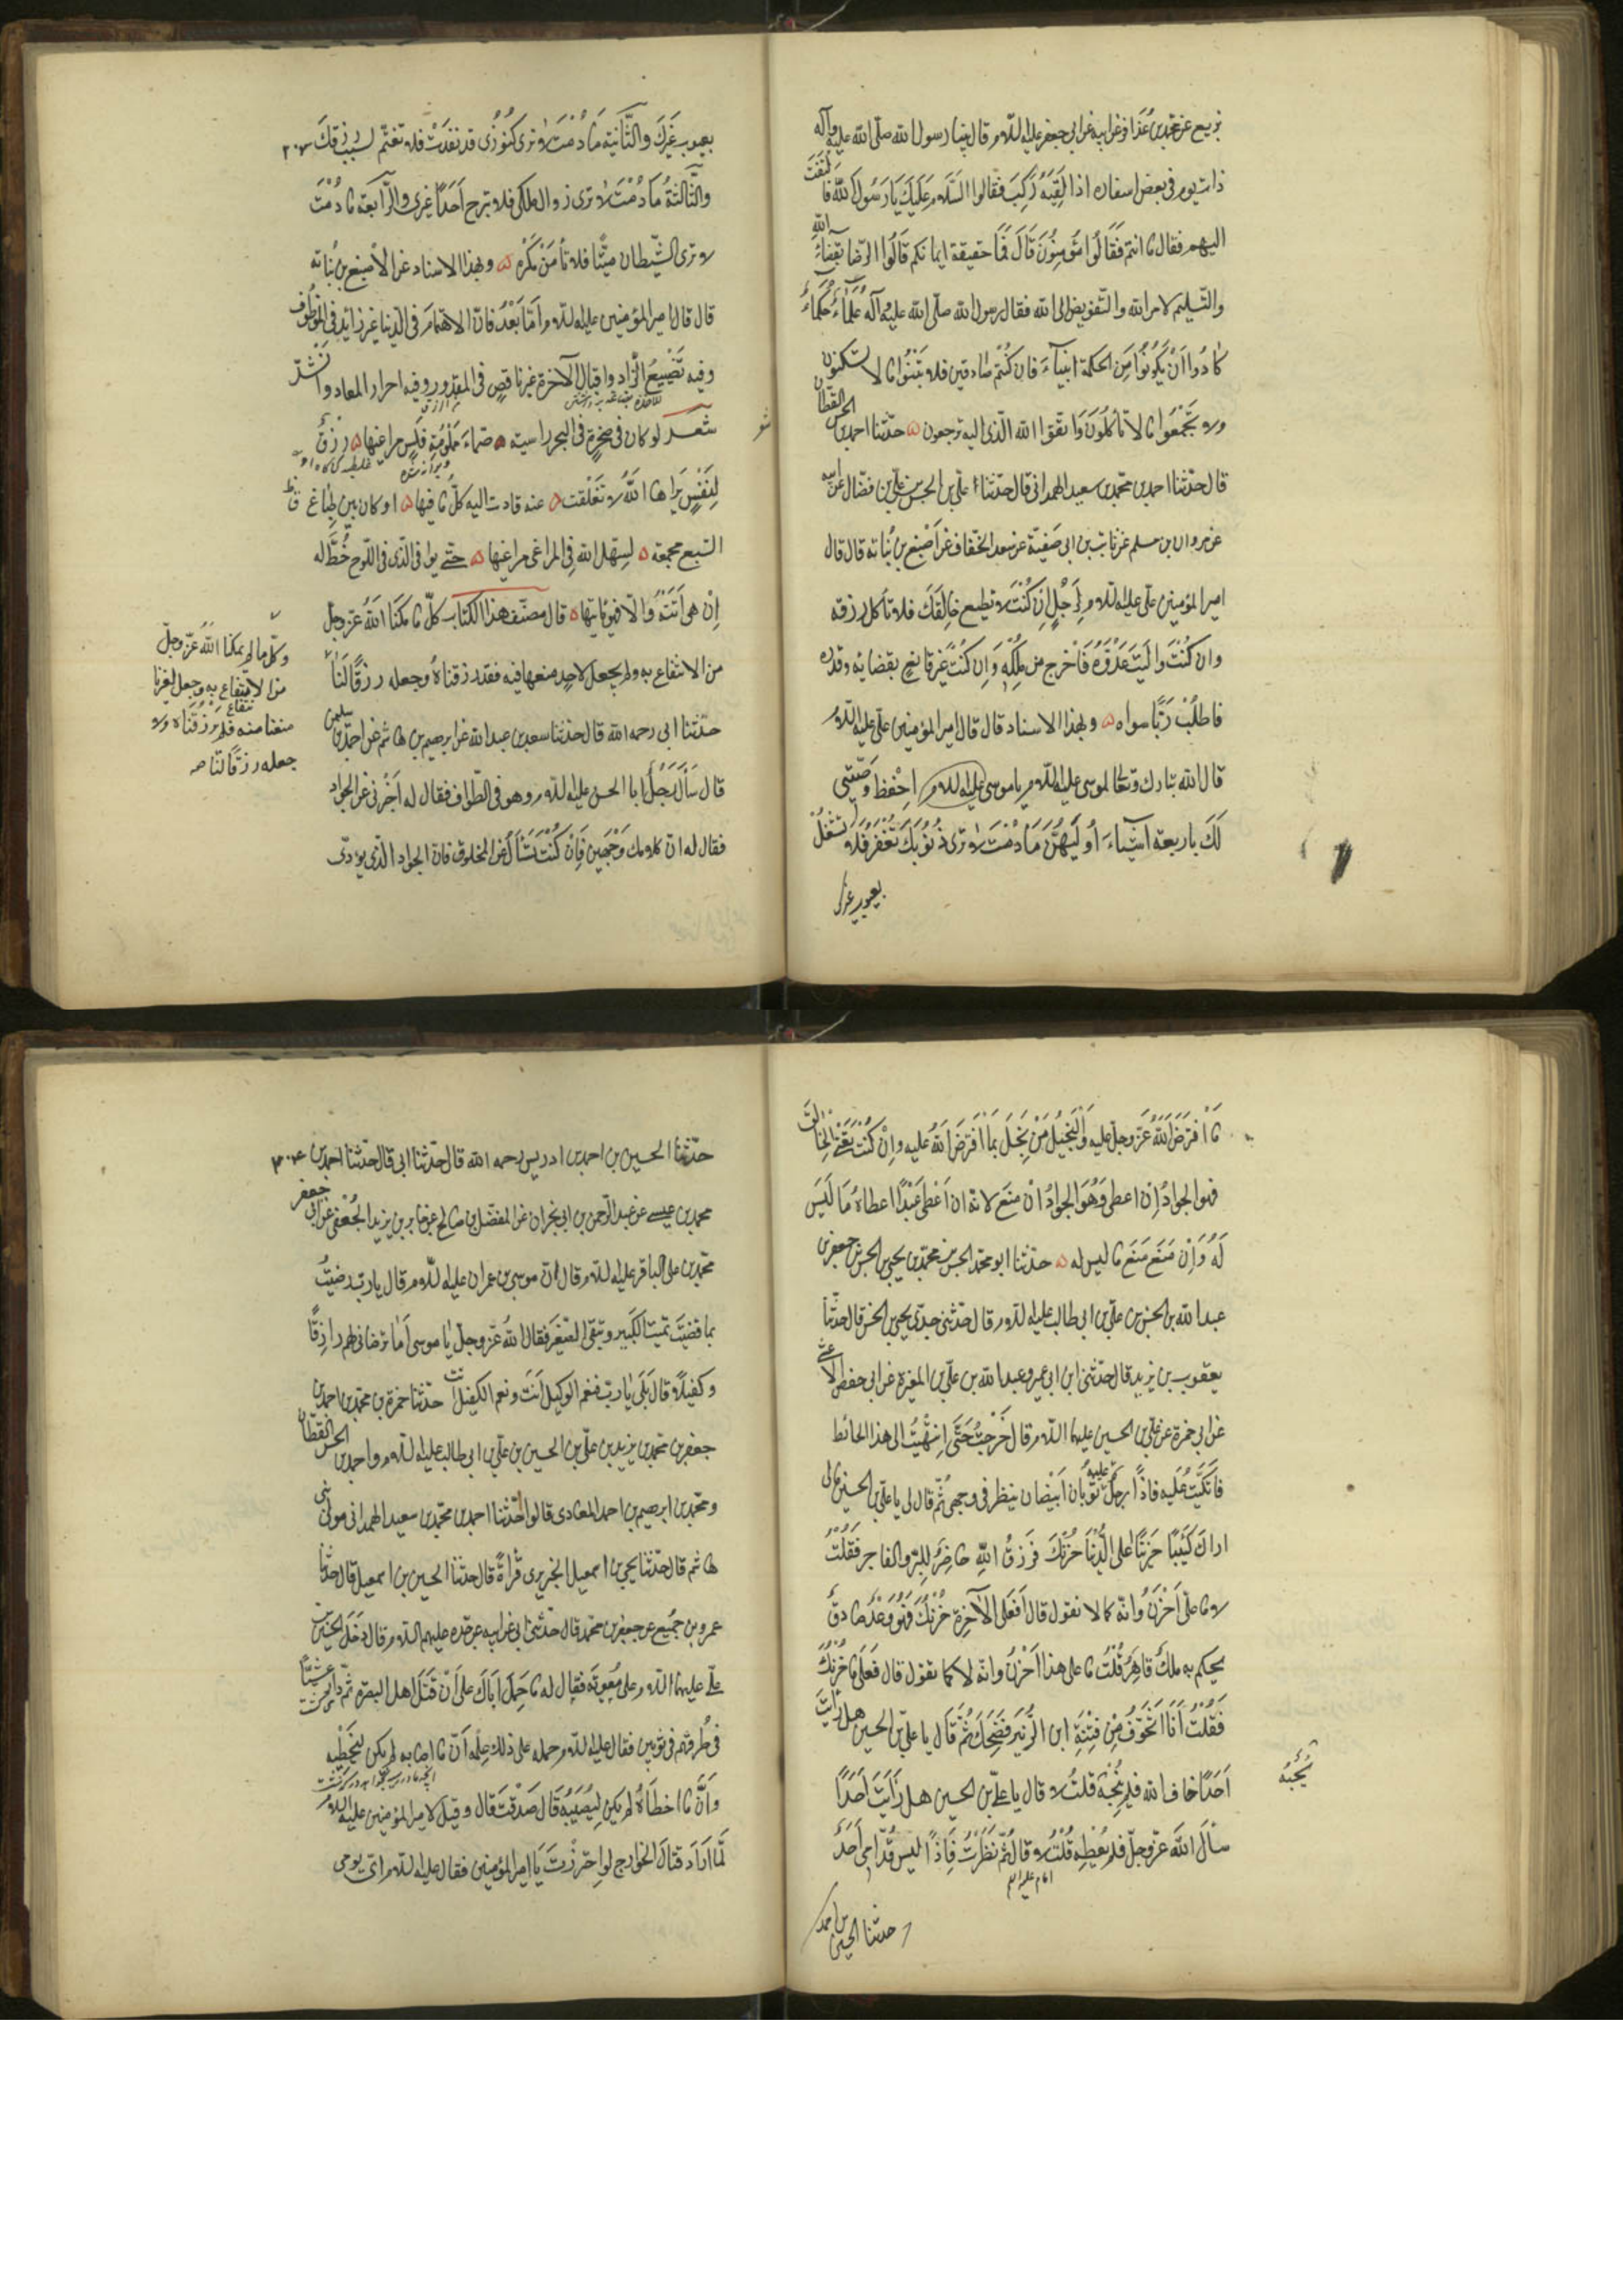 بزيع عن محمد بن عذافر عن ابيه عن ابي جعفر عليه السلام قال بينا رسول الله صلى الله عليه وآله
ذات يوم في بعض اسفاره اذا لَقِيَهُ رَكبٌ فقالوا السَّلام عَلَيكَ يَا رَسُولَ اللهِ فالتَفَتَ
اليهم فقال ما انتم فَقَالُوا مُؤمِنُونَ قَالَ فَمَا حقيقة ايمانكم قَالُوا الرّضا بِقضاءِ اللهِ
والتّسليم لامر الله والتّفويض الى الله فقال رسول الله صلّى الله عليه وآله عُلَمَاءُ حُكَمَاءُ
كادُوا اَنْ يَكُونُوا مِنَ الحكمة انبياءَ فان كُنْتُم صادقين فلا تَبْنُوا ما لا تسكنون
ولا تَجْمَعُوا ما لا تَأكلُونَ وَاتقوا الله الّذي اليه ترجعون ۵ حدّثنا احمد بن الحسن القطّان
قال حدّثنا احمد بن محمّد بن سعيد الهمداني قال حدّثنا علي بن الحسن بن علي بن فضال عن ابيه
عن مروان بن مسلم عن ثابت بن ابي صفيّة عن سعد الخفّاف عن اَصْبغ بن نُباته قال قال
امير المؤمنين علي عليه السلام لِرَجُلٍ اِن كُنْتَ لا تطيع خالِقَكَ فلا تأكل رزقه
وان كُنْتَ واليت عَدُوَّهُ فَاخرج من مُلْكِهِ وَاِن كُنْتَ غَيْرَ قانعٍ بقضائه وقدره
فاطلُبْ رَبًّا سواه ۵ وبهذا الاسناد قال قال امير المؤمنين علي عليه السلام
قال الله تبارك وتعالى لموسى عليه السلام يا موسى عليه السلام اِحْفظ وَصّيتي
لَكَ باربعة اشياءَ اُولَيهُنَّ مَا دُمْتَ لا ترى ذُنُوبَكَ تُغْفَرُ فَلا تَشْغلْ
بعيوب غيرك
بعيوب غَيْرِكَ والثَّانِيَة مَا دُمْتَ لا ترى كنُوُزي قد نَفَدَتْ فلا تغتمّ لسبب رزقكَ ٢٠٧
والثّالثةُ مَا دُمْتَ لا ترى زوال ملكي فلا ترج اَحَدًا غيري والرّابعة ما دُمْتَ
لا ترى الشّيطان ميّتًا فلا تأمَنْ مَكْرَهُ ۵ وبهذا الاسناد عن الاصبغ بن نُباته
قال قال امير المؤمنين عليه السلام اَمّا بَعْدُ فانّ الاهتمامَ في الدّنيا غير زائدٍ في الموظوف
وفيه تَضْيِيعُ الزّاد واقبال الآخرة غير ناقصٍ في المقدور وفيه احراز المعاد وانشد
شعر
شعر لو كان في صخرةٍ في البحر راسيته ۵ صمّاءَ مَلْمُومَةٍ مَلْسٍ مراغيها ۵ رزقٌ
لِنَفْسٍ يَراها اللهُ لا تَغَلّقت ۵ عنه فادت اليه كلّ ما فيها ۵ او كان بين طباغ
السّبع مجمعة ۵ لسهّل الله في المراغى مراغيها ۵ حتّى يوافي الّذي في اللّوح خُطّ له
اِنْ هي اَتَتْهُ والّا فهو ياتيها ۵ قال مصنّف هذا الكتاب كلّ ما مكنّنا اللهُ عزّوجلّ
من الانتفاع به ولم يجعل لاحدٍ منعها فيه فقد رزقناهُ وجعله رزقًا لنا
وكل ما لم يمكنّا اللهُ عزّوجلّ
من الانتفاع به وجعل لغيرنا
منعنا منه فلم يرزقناه ولا
جعله رزقًا لنا صح
حدّثنا ابي رحمه الله قال حدثنا سعد بن عبدالله عن ابرهيم بن هاشم عن احمد بن سليمن
قال سَأل رَجُلٌ ابا الحسن عليه السلام وهو في الطّواف فقال له اَخْبِرني عن الجواد
فقال له ان كلامك وَجْهَين فَاِن كُنْتَ تَسْألُ عن المخلوق فانّ الجواد الّذي يؤدّي
مَا افْتَرَضَ اللهُ عزّوجلّ عليه والْبَخيلُ مَنْ بَخِلَ بِما افْتَرَضَ اللهُ عليه واِنْ كُنْتَ تَعْني الخالق
فهو الجوادُ اِن اعطى وَهُوَ الجوادُ انْ منَعَ لانّه ان اَعْطى عَبْدًا اعطاهُ مَا لَيْسَ
لَهُ وَاِنْ مَنَعَ مَنَعَ ما ليس له ۵ حدّثنا ابو محمّد الحسن بن محمّد بن يحيى بن الحسن بن جعفر بن
عبدالله بن الحسين بن علي بن ابي طالب عليه السلام قال حدّثني جدّي يحيى بن الحسن قال حدّثنا
يعقوب بن يزيد قال حدّثني ابن ابي عمير وعبدالله بن علي بن المغيرة عن ابي حفص الاعشى
عن ابي حمزة عن علي بن الحسين عليهما السلام قال خَرَجْتُ حَتَّى اِنْتَهَيْتُ الى هذا الحائط
فَاتَّكَيْتُ عَلَيْه فاذًا بِرَجُلٍ عليه ثَوْبان اَبْيَضان ينظر في وجهي ثُمّ قال لي يا علي بن الحسين ما لي
اراكَ كَئِيبًا حَزينًا اعلى الدُّنْيَا حُزْنُكَ فَرِزقُ اللهِ حاضِرٌ لِلْبِرّ والفاجر فَقُلْتُ
لا ما على اَحْزَنُ وانّه كما لا تقول قال اَفَعَلى الآخرة حُزْنُكَ فهُوَ وَعْدٌ صادقٌ
يحكم به ملكٌ قاهِرٌ قُلتُ ما على هذا اَحْزَنُ وانّه لا كما تقول قال فَعَلى ما حُزْنُكَ
فَقُلْتُ اَنَا اَتَخَوّفُ مِنْ فِتْنَةِ ابن الزّبَيْر فَضَحِكَ ثُمّ قَالَ يا علي بن الحسين هل رَاَيْتَ
اَحَدًا خاف الله فلم يُنْجِهِ قلتُ لا قال يا علي بن الحسين هل رَاَيْتَ اَحَدًا
سألَ اللهَ عزّوجلّ فلم يُعْطِهِ قُلْتُ لا قال ثُمّ نَظَرْتُ فَاِذًا ليس قُدّامي اَحَدٌ
حدثنا الحسين بن احمد
حدّثنا الحسين بن احمد بن ادريس رحمه الله قال حدّثنا ابي قال حدّثنا احمد بن
محمد بن عيسى عن عبد الرّحمن بن ابي نجران عن المفضّل بن صالح عن جابر بن يزيد الجُعْفي عن ابي جعفر
محمّد بن علي الباقر عليه السلام قال انّ موسى بن عمران عليه السلام قال يا ربّ رضيتُ
بما قضيتَ تميت الكبير وتبقي الصّغيرَ فقال اللهُ عزّوجلّ يا موسى اَما ترضاني لهم رازقًا
وكفيلًا قال بَلى يا ربّ فنعم الوكيل اَنتَ ونعم الكفيل انت حدّثنا حمزة بن محمّد بن احمد بن
جعفر بن محمّد بن زيد بن علي بن الحسين بن علي بن ابي طالب عليه السلام واحمد بن الحسن القطّان
ومحمّد بن ابرهيم بن احمد المعاذي قالوا حدّثنا احمد بن محمّد بن سعيد الهمداني مولى بني
هاشم قال حدّثنا يحيى بن اسمعيل الجريري قراءةً قال حدّثنا الحسين بن اسمعيل قال حدّثنا
عمرو بن جُمَيْع عن جعفر بن محمّد قال حدّثني ابي عن ابيه عن جدّه عليهم السلام قال دَخَلَ الحسين بن
علي عليهما السلام على مُعٰويَة فقال له ما حَمَلَ اَباكَ على اَنْ قَتَلَ اهل البصره ثمّ دار عشيًّا
في طُرقهم في ثوبين فقال عليه السلام حمله على ذلك عِلْمُه اَنّ ما اصابه لم يكن ليُخْطِئَه
وَاَنّ ما اخطاَهُ لم يكن لِيُصيبَهُ قَالَ صَدَقْتَ قال وقيلَ لامير المؤمنين عليه السلام
لَمّا اَرادَ قتالَ الخوارج لو اِحتَرَزْتَ يَا امير المؤمنين فقال عليه السلام اي يومي